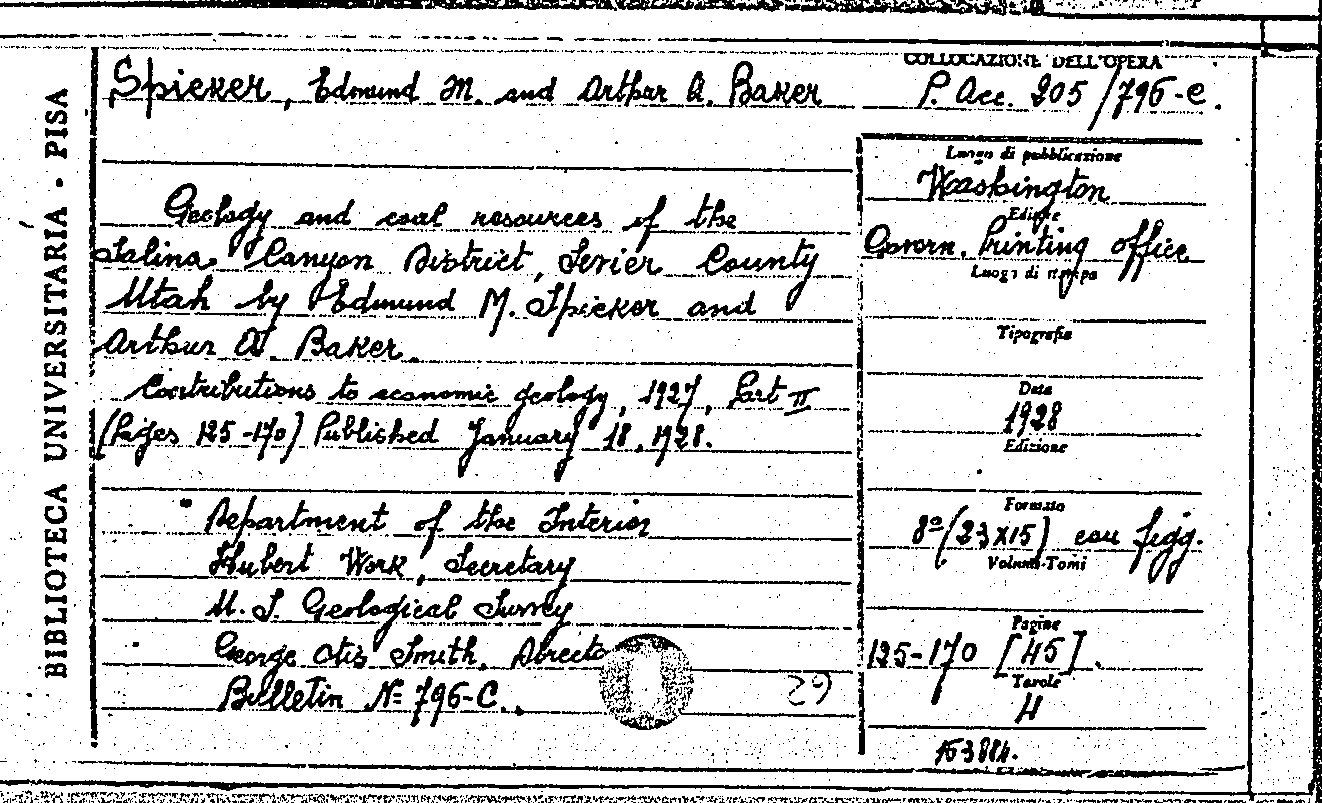 BIBLIOTECA UNIVERSITARIA - PISA
Spieker, Edmund M. and Arthur A. Baker
COLLOCAZIONE DELL'OPERA
P. Acc. 205/796-c.
Geology and coal resources of the
Salina Canyon District, Sevier County
Utah by Edmund M. Spieker and
Arthur A. Baker.
Contributions to economic geology, 1927, Part II
(Pages 125-170) Published January 18, 1928.
Department of the Interior
Hubert Work, Secretary
U. S. Geological Survey
George Otis Smith, Director
Bulletin Nº 796-C.
29
Luogo di pubblicazione
Washington
Editore
Govern. Printing office
Luogo di stampa
Tipografia
Data
1928
Edizione
Formato
8º (23x15) con figg.
Volumi-Tomi
Pagine
125-170 [45].
Tavole
4